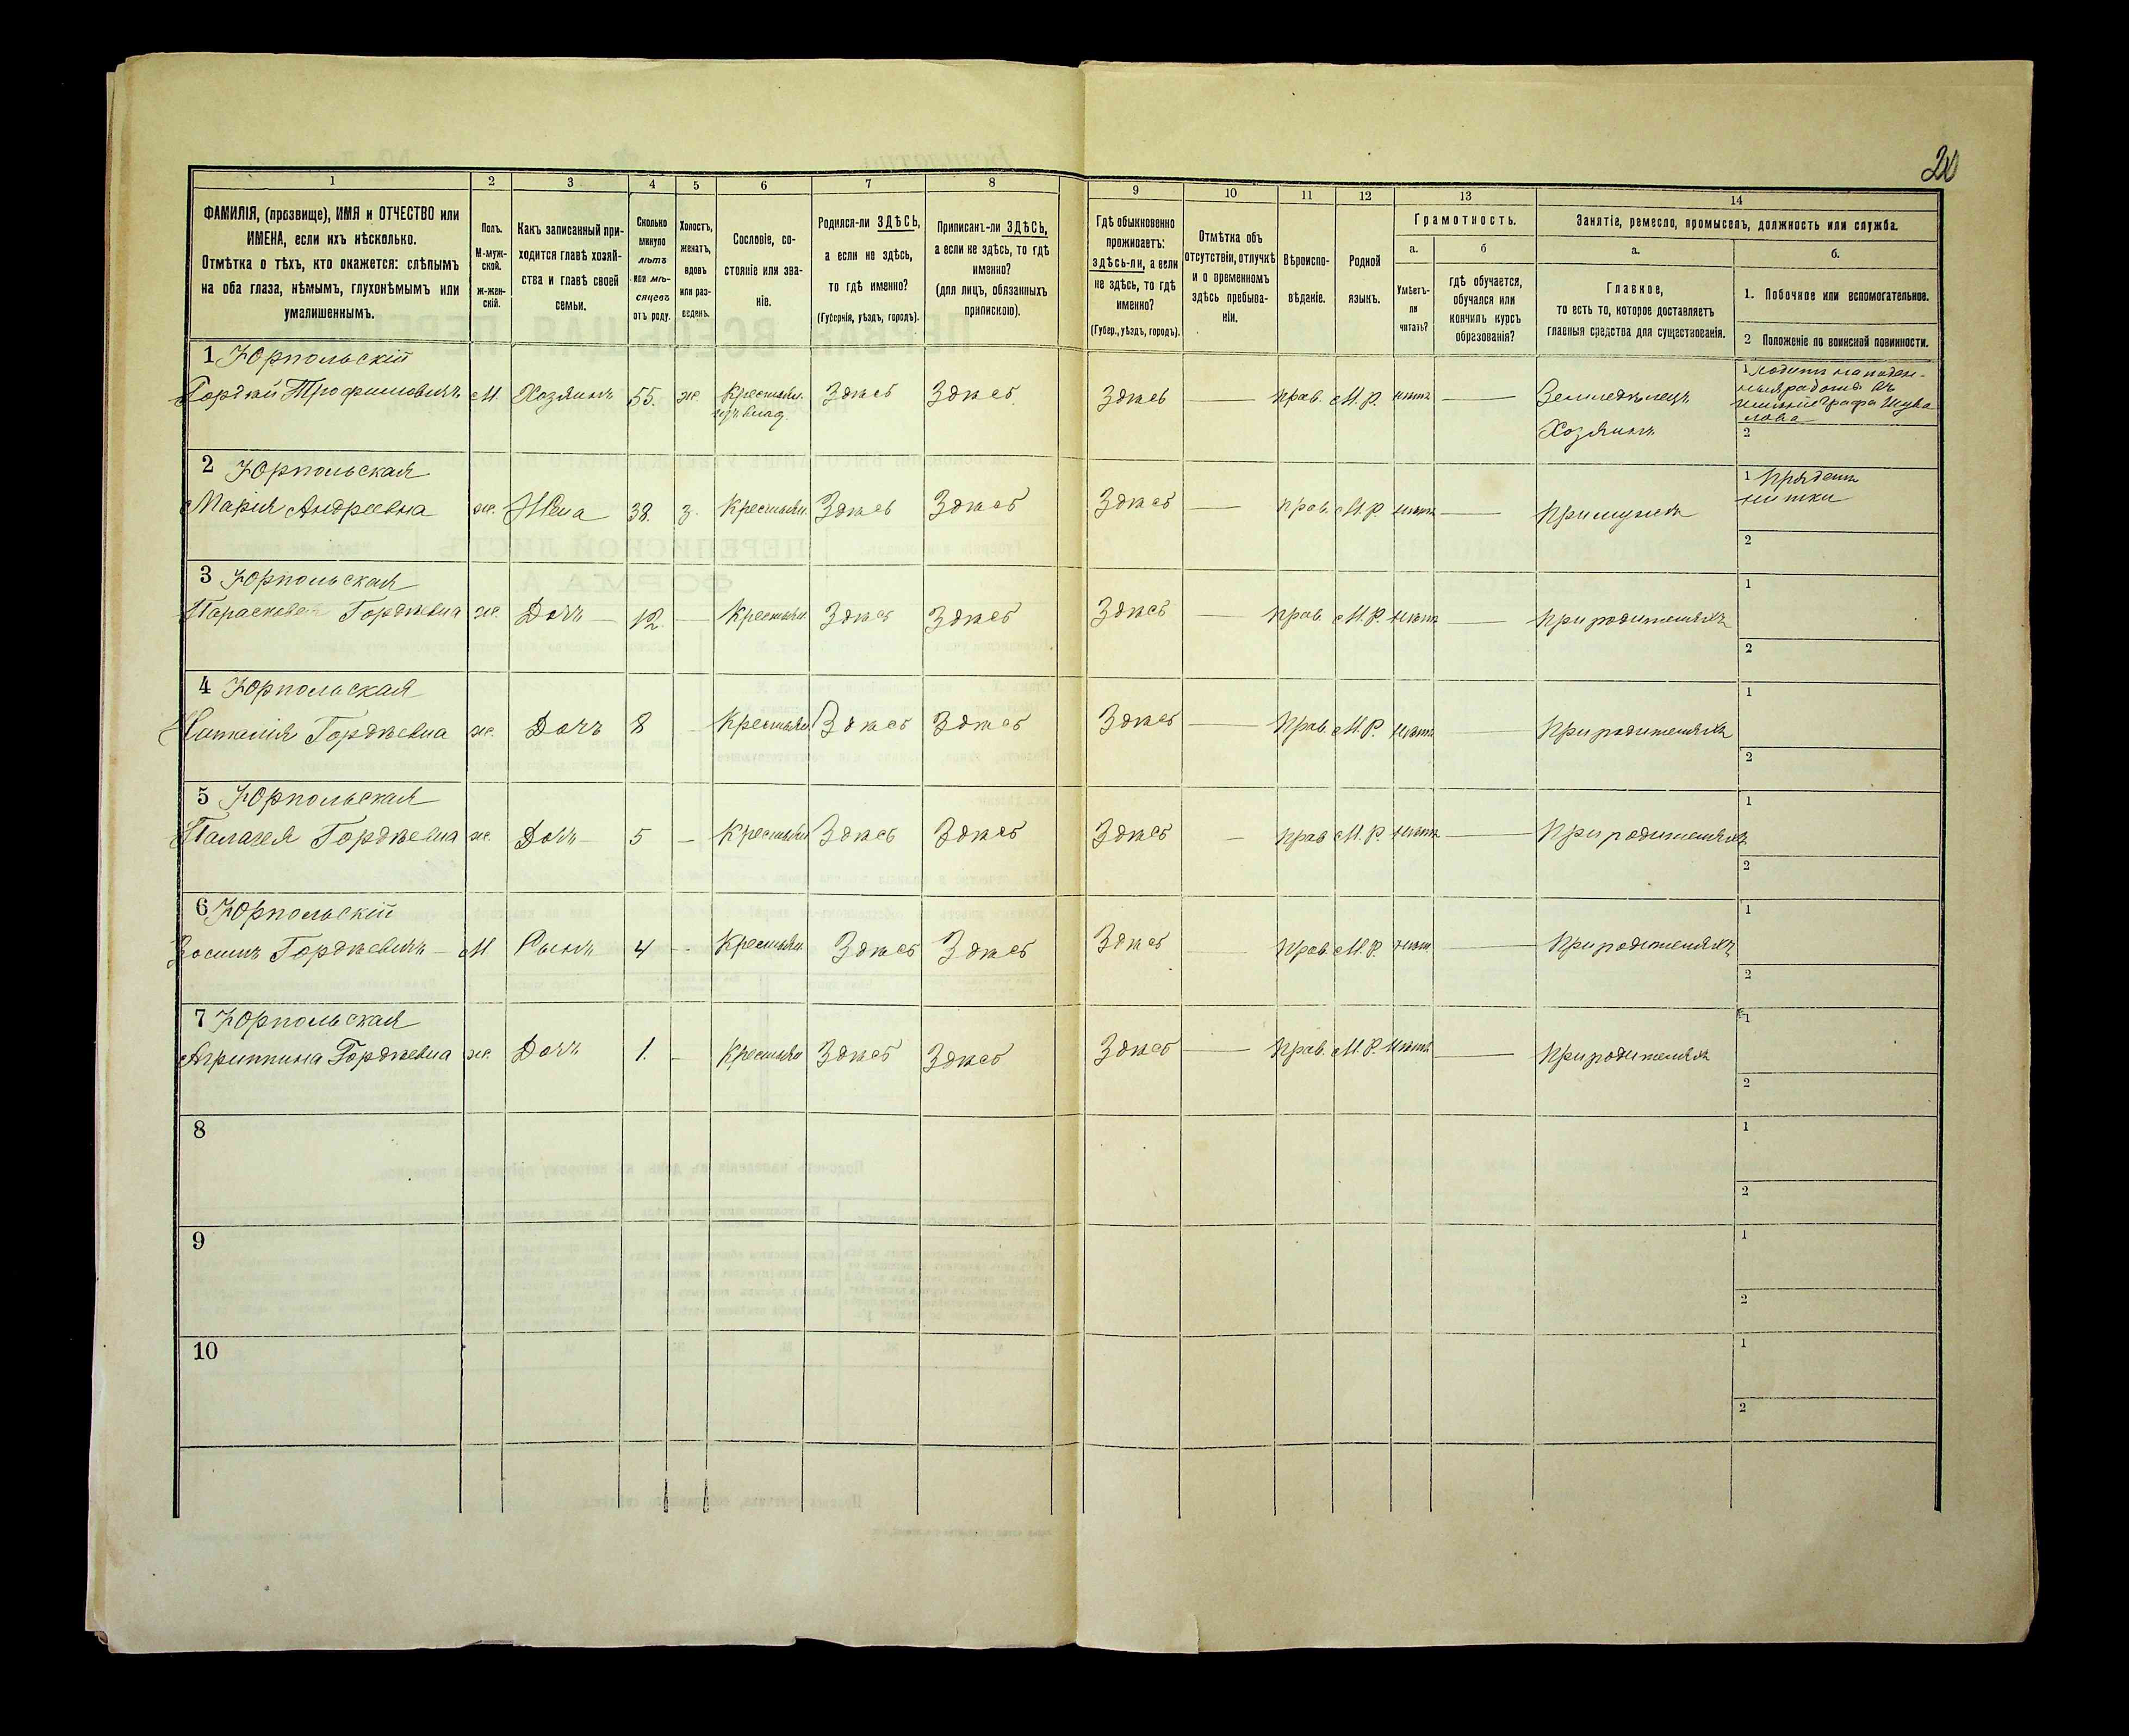 20
1 2 3 4 5 6 7 8 9 10 11 12 13 14
ФАМИЛІЯ, (прозвище), ИМЯ и ОТЧЕСТВО или
ИМЕНА, если ихъ нѣсколько.
Отмѣтка о тѣхъ, кто окажется: слѣпымъ
на оба глаза, нѣмымъ, глухонѣмымъ или
умалишеннымъ.
Полъ.
М-муж-
ской.
ж-жен-
скій.
Какъ записанный при-
ходится главѣ хозяй-
ства и главѣ своей
семьи.
Сколько
минуло
лѣтъ
или мѣ-
сяцевъ
отъ роду.
Холостъ,
женатъ,
вдовъ
или раз-
веденъ.
Сословіе, со-
стояніе или зва-
ніе.
Родился-ли ЗДѢСЬ,
а если не здѣсь,
то гдѣ именно?
(Губернія, уѣздъ, городъ).
Приписанъ-ли ЗДѢСЬ,
а если не здѣсь, то гдѣ
именно?
(для лицъ, обязанныхъ
припискою).
Гдѣ обыкновенно
проживаетъ:
здѣсь-ли, а если
не здѣсь, то гдѣ
именно?
(Губер., уѣздъ, городъ).
Отмѣтка объ
отсутствіи, отлучкѣ
и о временномъ
здѣсь пребыва-
ніи.
Вѣроиспо-
вѣданіе.
Родной
языкъ.
Грамотность.
а.
Умѣетъ-
ли
читать?
б
гдѣ обучается,
обучался или
кончилъ курсъ
образованія?
Занятіе, ремесло, промыселъ, должность или служба.
а.
Главное,
то есть то, которое доставляетъ
главныя средства для существованія.
б.
1. Побочное или вспомогательное.
2 Положеніе по воинской повинности.
1 Юрпольскій
Гордѣй Трофимовичъ М. Хозяинъ 55. ж Крестьян. Здѣсь Здѣсь Здѣсь — прав. М. Р. нѣтъ — Земледѣлецъ
изъ влад.
Хозяинъ
1 Ходитъ на поден-
ныя работы въ
имѣніе Графа Шува
лова
2
2 Юрпольская
Марія Андреевна ж. Жена 38. з. Крестьян. Здѣсь Здѣсь Здѣсь — прав. М. Р. нѣтъ — При мужѣ
1 Прядетъ
нитки
2
3 Юрпольская
Параскева Гордѣевна ж. Дочь — 12. — Крестьян. Здѣсь Здѣсь Здѣсь — прав. М. Р. нѣтъ — При родителяхъ
1
2
4 Юрпольская
Наталія Гордѣевна ж. Дочь 8 — Крестьян. Здѣсь Здѣсь Здѣсь — Прав. М. Р. нѣтъ — При родителяхъ
1
2
5 Юрпольская
Палагея Гордѣевна ж. Дочь — 5 — Крестьян. Здѣсь Здѣсь Здѣсь — прав М. Р. нѣтъ — При родителяхъ
1
2
6 Юрпольскій
Зосимъ Гордѣевичъ — М. Сынъ 4 — Крестьян. Здѣсь Здѣсь Здѣсь — Прав. М. Р. нѣт. — При родителяхъ
1
2
7 Юрпольская
Агриппина Гордѣевна ж. Дочь 1. — Крестьян Здѣсь Здѣсь Здѣсь — Прав. М. Р. нѣтъ — При родителяхъ
1
2
8
1
2
9
1
2
10
1
2